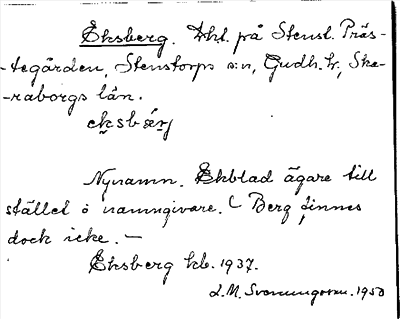 Eksberg. Lht på Stenst. Präs-
-tegården, Stenstorps s:n, Gudh. hr, Ska-
-raborgs län.
eksbärj
Nynamn. Ekblad ägare till
stället o namngivare. Berg finnes
dock icke. —
Eksberg kb. 1937.
L.M. Svanungsson. 1950